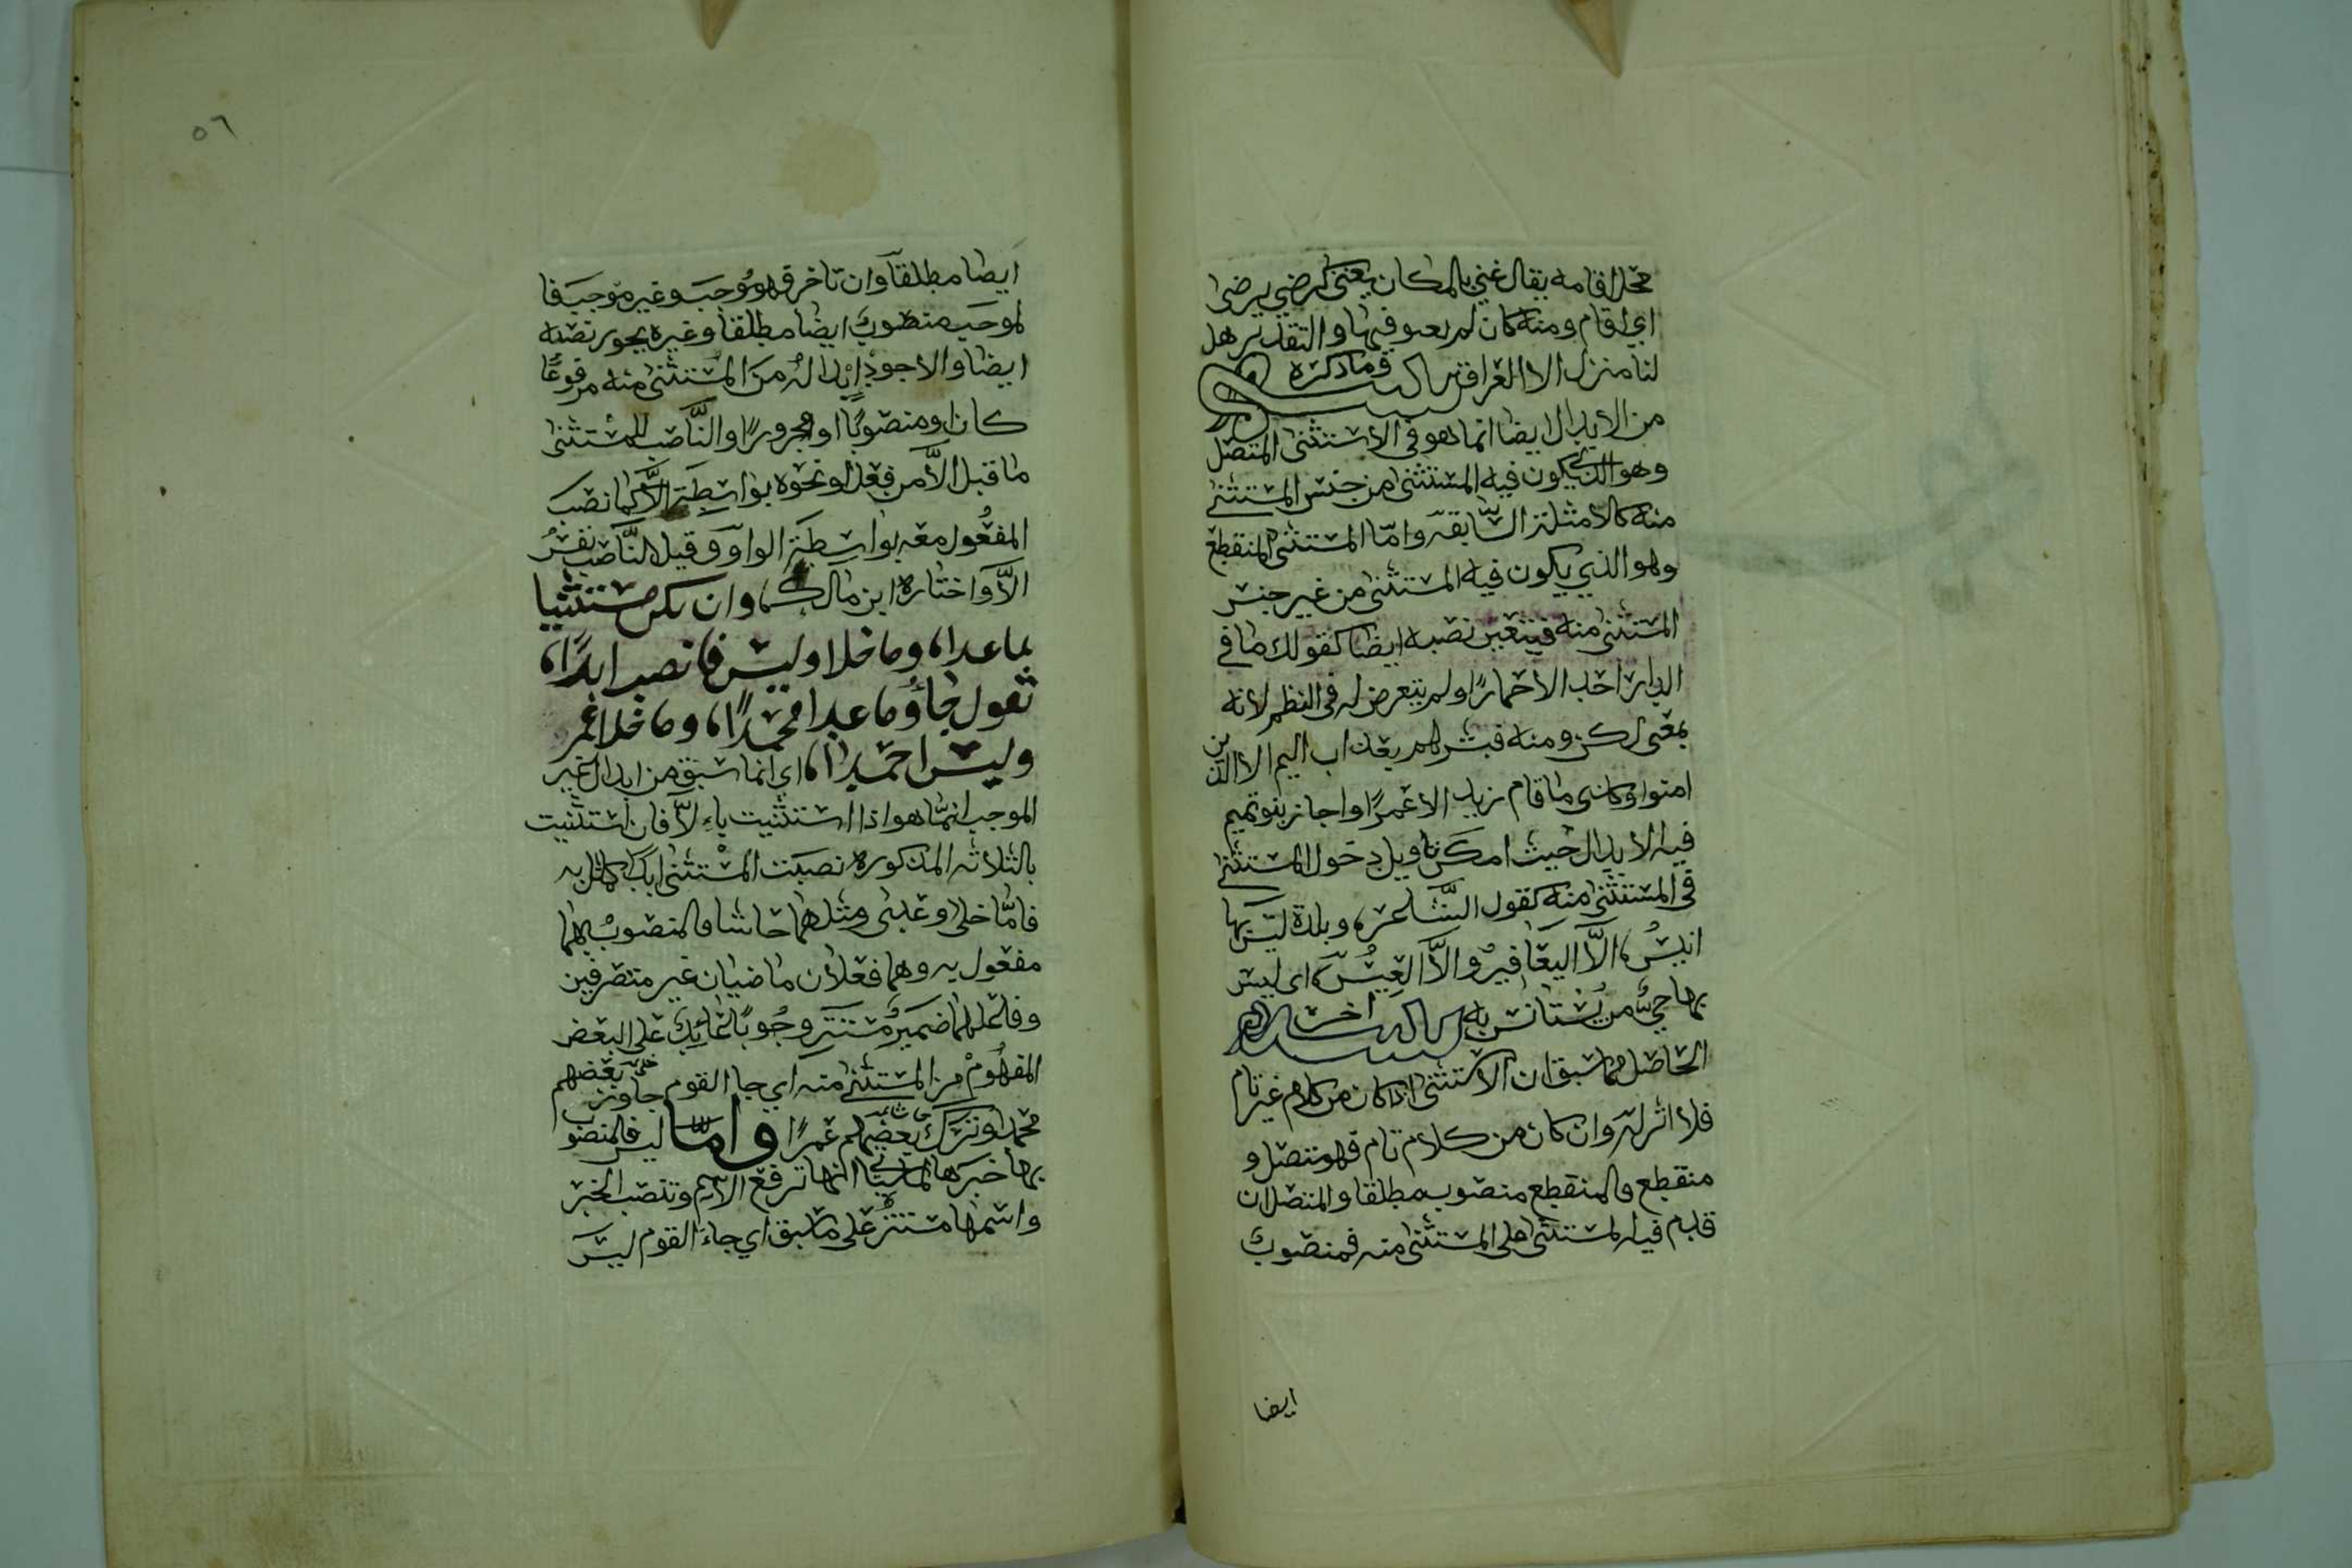 محل اقامه يقال غني بالمكان يغنى كرضي يرضى
اي اقام ومنه كان لم يغنو فيها والتقدير هل
لنا منزل الا الغراقد تنبيه وما ذكره
من الابدال ايضا انما هو في الاستثنى المتصل
وهو الذي يكون فيه المستثنى من جنس المستثنى
منه كالامثلة السّابقه وامّا المستثنى المنقطع
وهو الذي يكون فيه المستثنى من غير جنس
المستثنى منه فيتعين نصبه ايضا كقولك ما في
الدار احد الا حمارًا ولم يتعرض له في النظم لانه
بمعنى لكن ومنه فبشرهم بعذاب اليم الا الذين
امنوا وكذى ما قام زيد الا عمرًا واجاز بنو تميم
فيه الابدال حيث امكن تاويل دخول المستثنى
في المستثنى منه كقول الشّاعر، وبلدة ليس بها
انيسُ، الاَّ اليعَافيرُ والاَّ العِيسُ، اي ليس
بها حيٌّ من يُستانس به تنبيه اخر
الحاصل مما سبق ان الاستثنى اذا كان من كلام غير تام
فلا اثر له وان كان من كلام تام فهو متصل و
منقطع فالمنقطع منصوب مطلقا والمتصل ان
قدم فيه المستثنى على المستثنى منه فمنصوب
ايضا
٥٦
ايضا مطلقا وان تاخر فهو مُوجب وغير موجب فا
لموجب منصوب ايضا مطلقا وغيره يجوز نصبه
ايضا والاجود ابدالُه من المستثنى منه مرفوعًا
كان او منصوبًا او مجرورًا والنَّاصب للمستثنى
ما قبل الاَّ من فعل او نحوه بواسطة الاَّ كما نصب
المفعُول معه بواسطة الواو وقيل النَّاصب نفسُ
الاَّ واختاره ابن مالك، وان يكن مستثنيا
بما عدا، وما خلا وليس فانصب ابدًا،
تقول جاؤ ما عدا محمدًا، وما خلا عمر
وليس احمدا، اي انما سبق من ابدال غير
الموجب انمّا هو اذا استثنيت باءِ لاّ فان استثنيت
بالثلاثه المذكوره نصبت المستثنى ابدًا كما مثل به
فامّا خلا وعدى ومثلهما حاشا فالمنصوبُ بهما
مفعول به وهما فعلان ماضيان غير متصرفين
وفاعلهما ضميرٌ مستتر وجُوبًا عايدٌ على البعض
المفهُوْم من المستثنى منه اي جا القوم خلى جاوز بعضهم
محمدا وترك بعضهم عمرًا وامّا ليس فالمنصوب
بها خبرها لما سياتي انها ترفع الاسم وتنصب الخبر
واسمها مستترٌ على ما سبق اي جاءَ القوم ليسَ